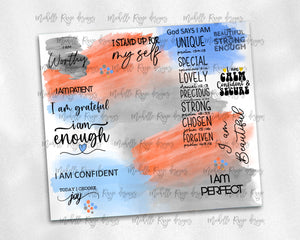 I AM
Worthy
I STAND UP FOR
my self
God SAYS I AM
UNIQUE
SPECIAL
LOVELY
PRECIOUS
STRONG
CHOSEN
FORGIVEN
BEAUTIFUL
STRONG
ENOUGH
I am
CALM
Confident &
SECURE
I AM PATIENT
I am grateful
i am
enough
I AM CONFIDENT
TODAY I CHOOSE
joy
I am
Beautiful
I AM
PERFECT
Michelle Raye designs